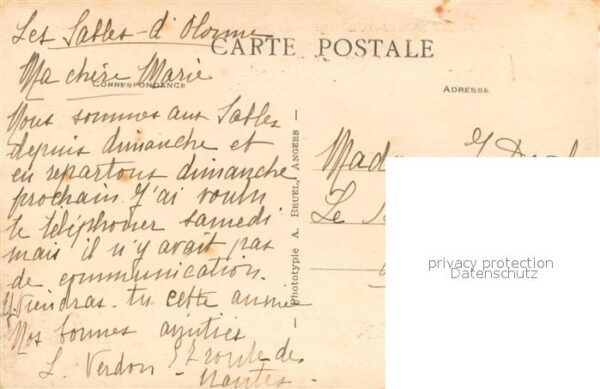 Les Sables-d'Olonne
CARTE POSTALE
Ma chère Marie
CORRESPONDANCE
ADRESSE
Nous sommes aux Sables
depuis dimanche et
en repartons dimanche
prochain J'ai voulu
te téléphoner samedi
mais il n'y avait pas
de communication.
Viendras-tu cette année
Nos bonnes amitiés
L. Verdon 
route de
Nantes.
Phototypie A. BRUEL, ANGERS
Mad
Le
privacy protection
Datenschutz